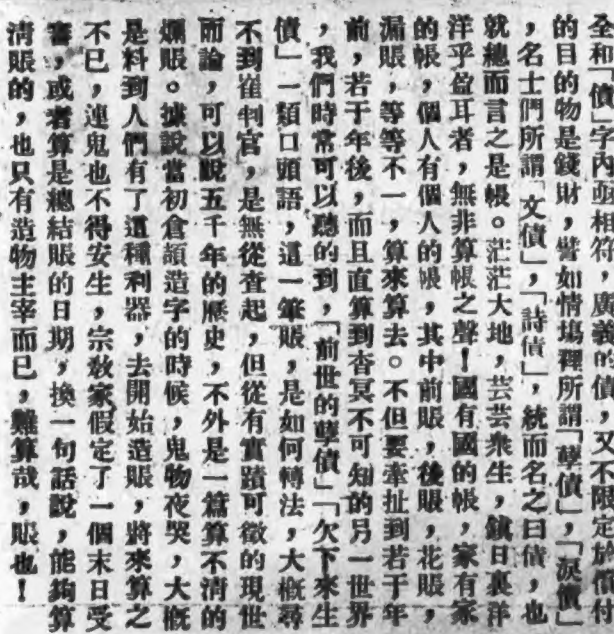 全和「債」字內亟相符，廣義的債，又不限定於償付
的目的物是錢財，譬如情塲裡所謂「孽債」，「淚債」
，名士們所謂「文債」，「詩債」，統而名之曰債，也
就總而言之是帳。茫茫大地，芸芸衆生，鎮日裏洋
洋乎盈耳者，無非算帳之聲！國有國的帳，家有家
的帳，個人有個人的帳，其中前賬，後賬，花賬，
漏賬，等等不一，算來算去。不但要牽扯到若干年
前，若干年後，而且直算到杳冥不可知的另一世界
，我們時常可以聽的到，「前世的孽債」「欠下來生
債」一類口頭語，這一筆賬，是如何轉法，大槪尋
不到崔判官，是無從查起，但從有實蹟可徵的現世
而論，可以說五千年的歷史，不外是一篇算不清的
爛賬。據說當初倉頡造字的時候，鬼物夜哭，大槪
是料到人們有了這種利器，去開始造賬，將來算之
不已，連鬼也不得安生，宗敎家假定了一個末日受
審，或者算是總結賬的日期，換一句話說，能夠算
清賬的，也只有造物主宰而已，難算哉，賬也！